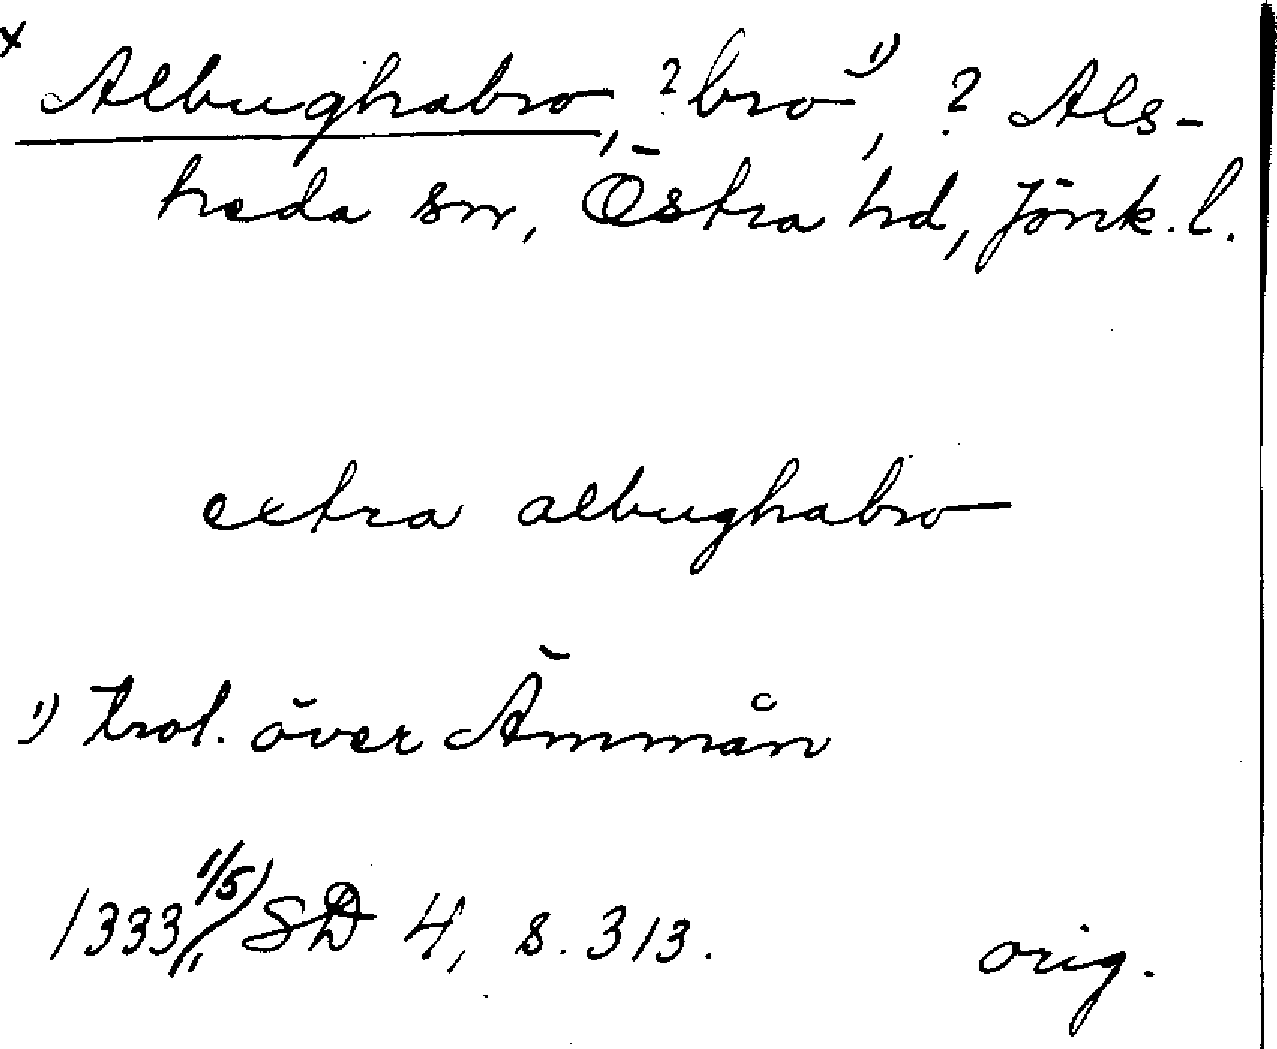 x Albughabro, ? bro 1), ? Als-
heda sn, Östra hd, Jönk. l.
extra albughabro
1) trol. över Ämmån
1333 1/5 SD 4, s. 313. orig.